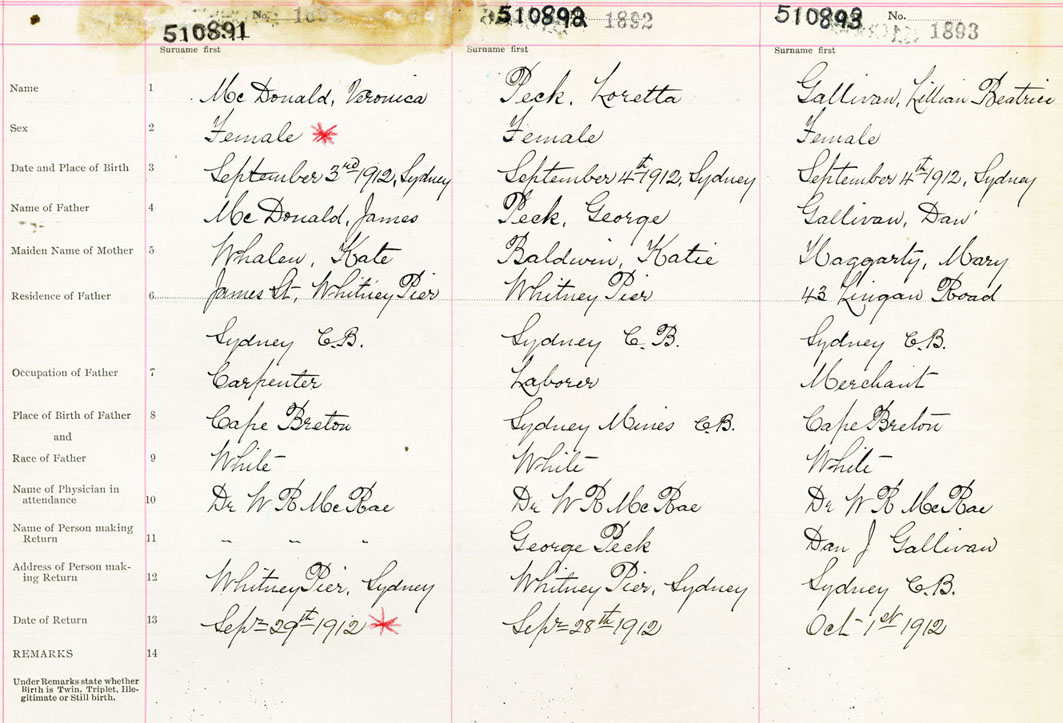 No. 510892 1892 510893 No. 1893
510891
Surname first Surname first Surname first
Name 1 Mc Donald, Veronica Peck, Loretta Gallivan, Lillian Beatrice
Sex 2 Female Female Female
Date and Place of Birth 3 September 3rd 1912, Sydney September 4th 1912, Sydney September 4th 1912, Sydney
Name of Father 4 Mc Donald, James Peck, George Gallivan, Dan'
Maiden Name of Mother 5 Whalen, Kate Baldwin, Katie Haggarty, Mary
Residence of Father 6 James St, Whitney Pier Whitney Pier 43 Lingan Road
Sydney C.B. Sydney C.B. Sydney C.B.
Occupation of Father 7 Carpenter Laborer Merchant
Place of Birth of Father 8 Cape Breton Sydney Mines C.B. Cape Breton
and
Race of Father 9 White White White
Name of Physician in
attendance 10 Dr W R McRae Dr W R McRae Dr W R McRae
Name of Person making
Return 11 " " " George Peck Dan J Gallivan
Address of Person mak-
ing Return 12 Whitney Pier, Sydney Whitney Pier, Sydney Sydney C.B.
Date of Return 13 Sepr 29th 1912 Sepr 28th 1912 Oct 1st 1912
REMARKS 14
Under Remarks state whether
Birth is Twin, Triplet, Ille-
gitimate or Still birth.